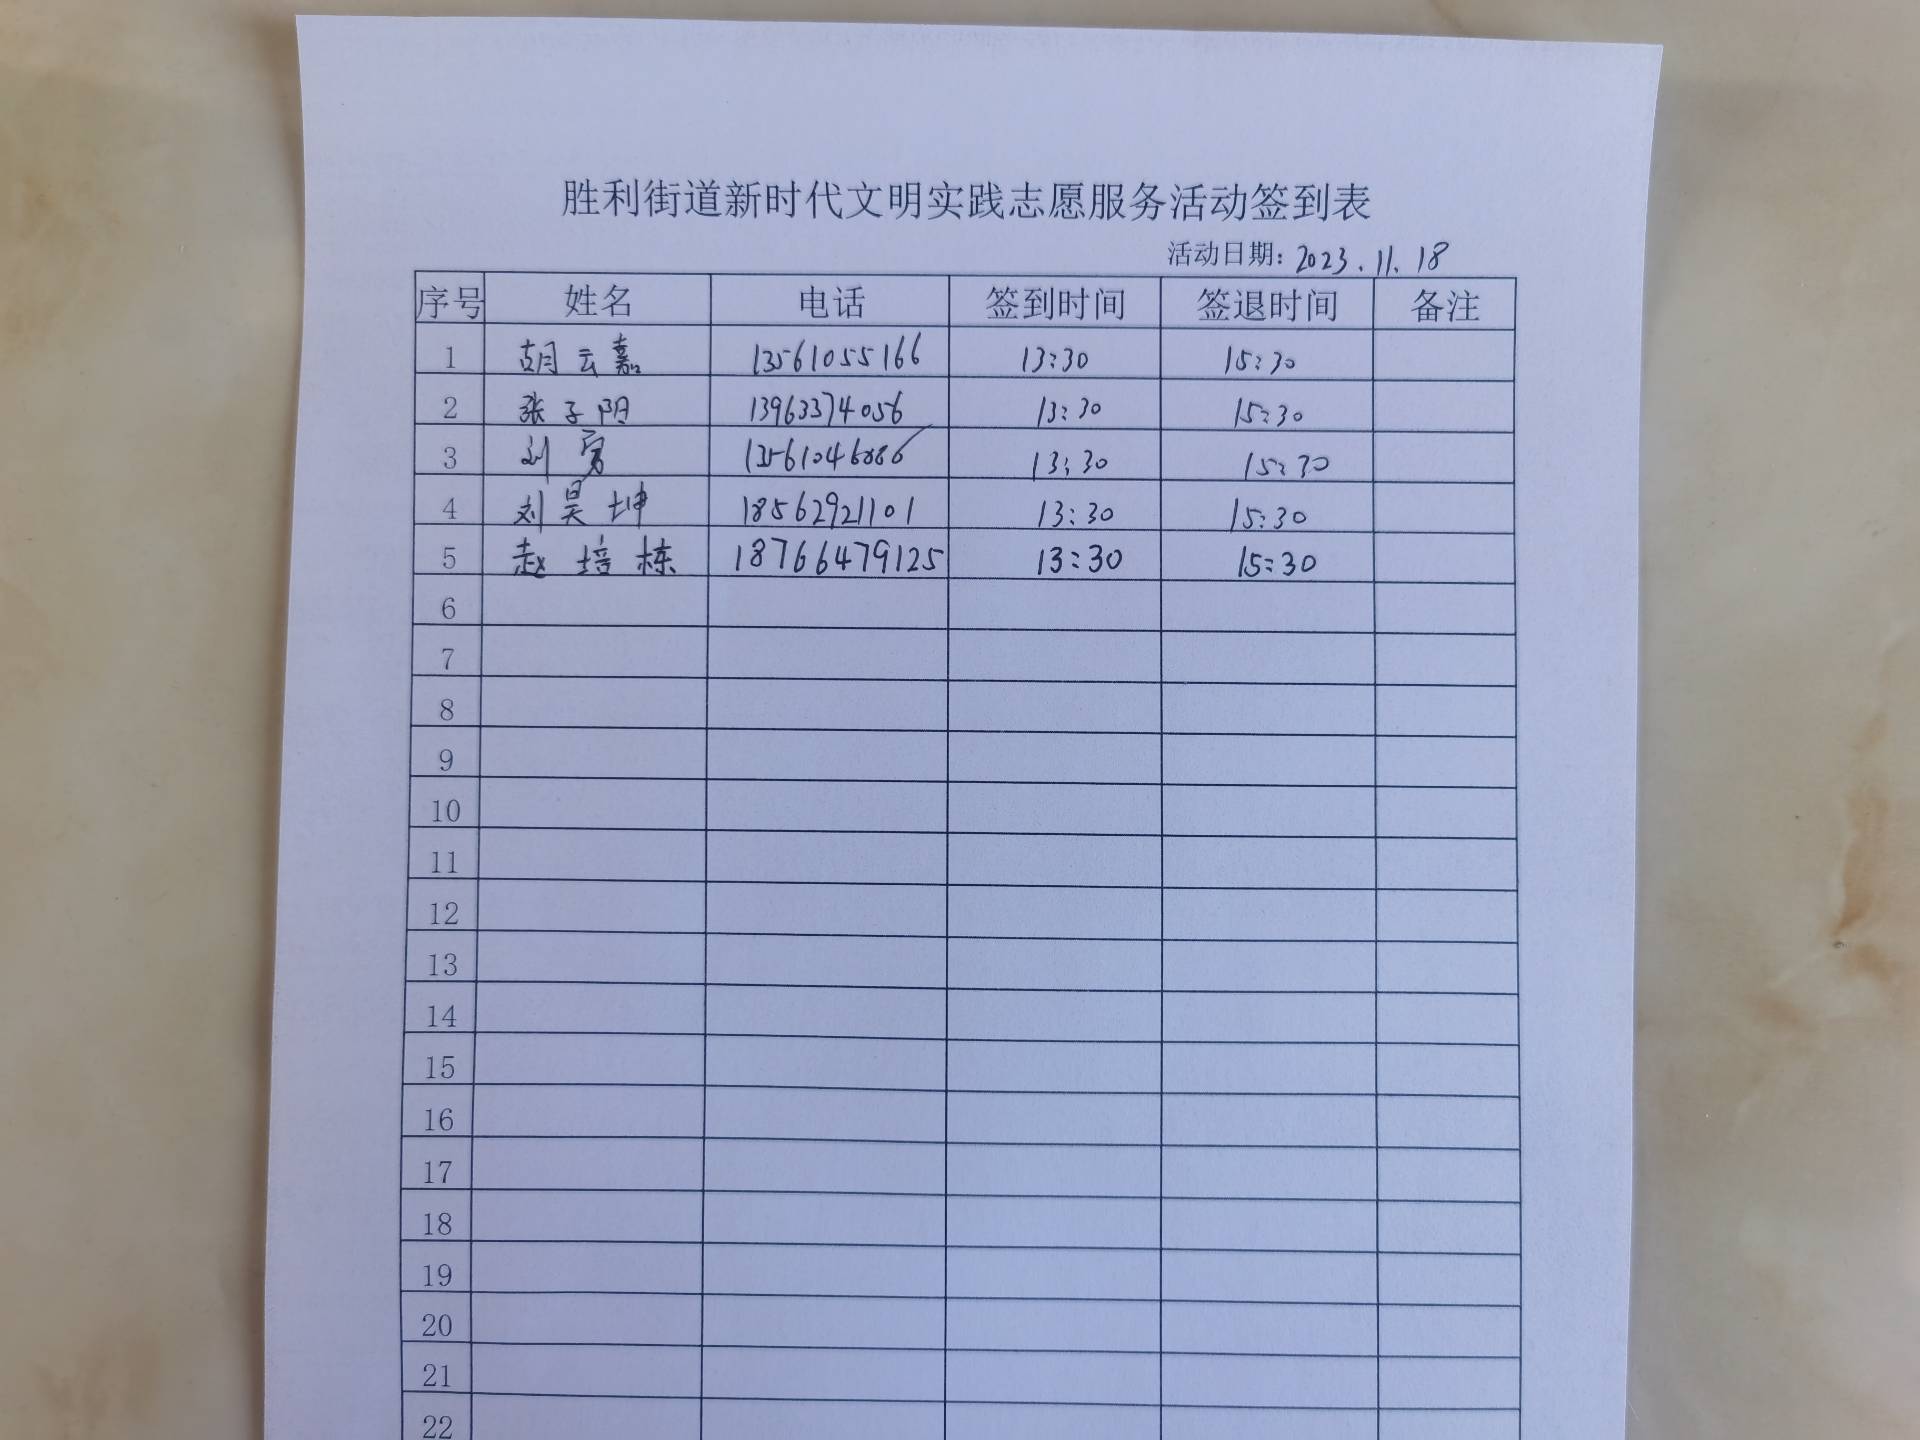 胜利街道新时代文明实践志愿服务活动签到表
活动日期：2023.11.18
序号 姓名 电话 签到时间 签退时间 备注
1 胡云嘉 13561055166 13:30 15:30
2 张子阳 13963374056 13:30 15:30
3 刘勇 13:30 15:30
4 刘昊坤 18562921101 13:30 15:30
5 赵培栋 18766479125 13:30 15:30
6
7
8
9
10
11
12
13
14
15
16
17
18
19
20
21
22